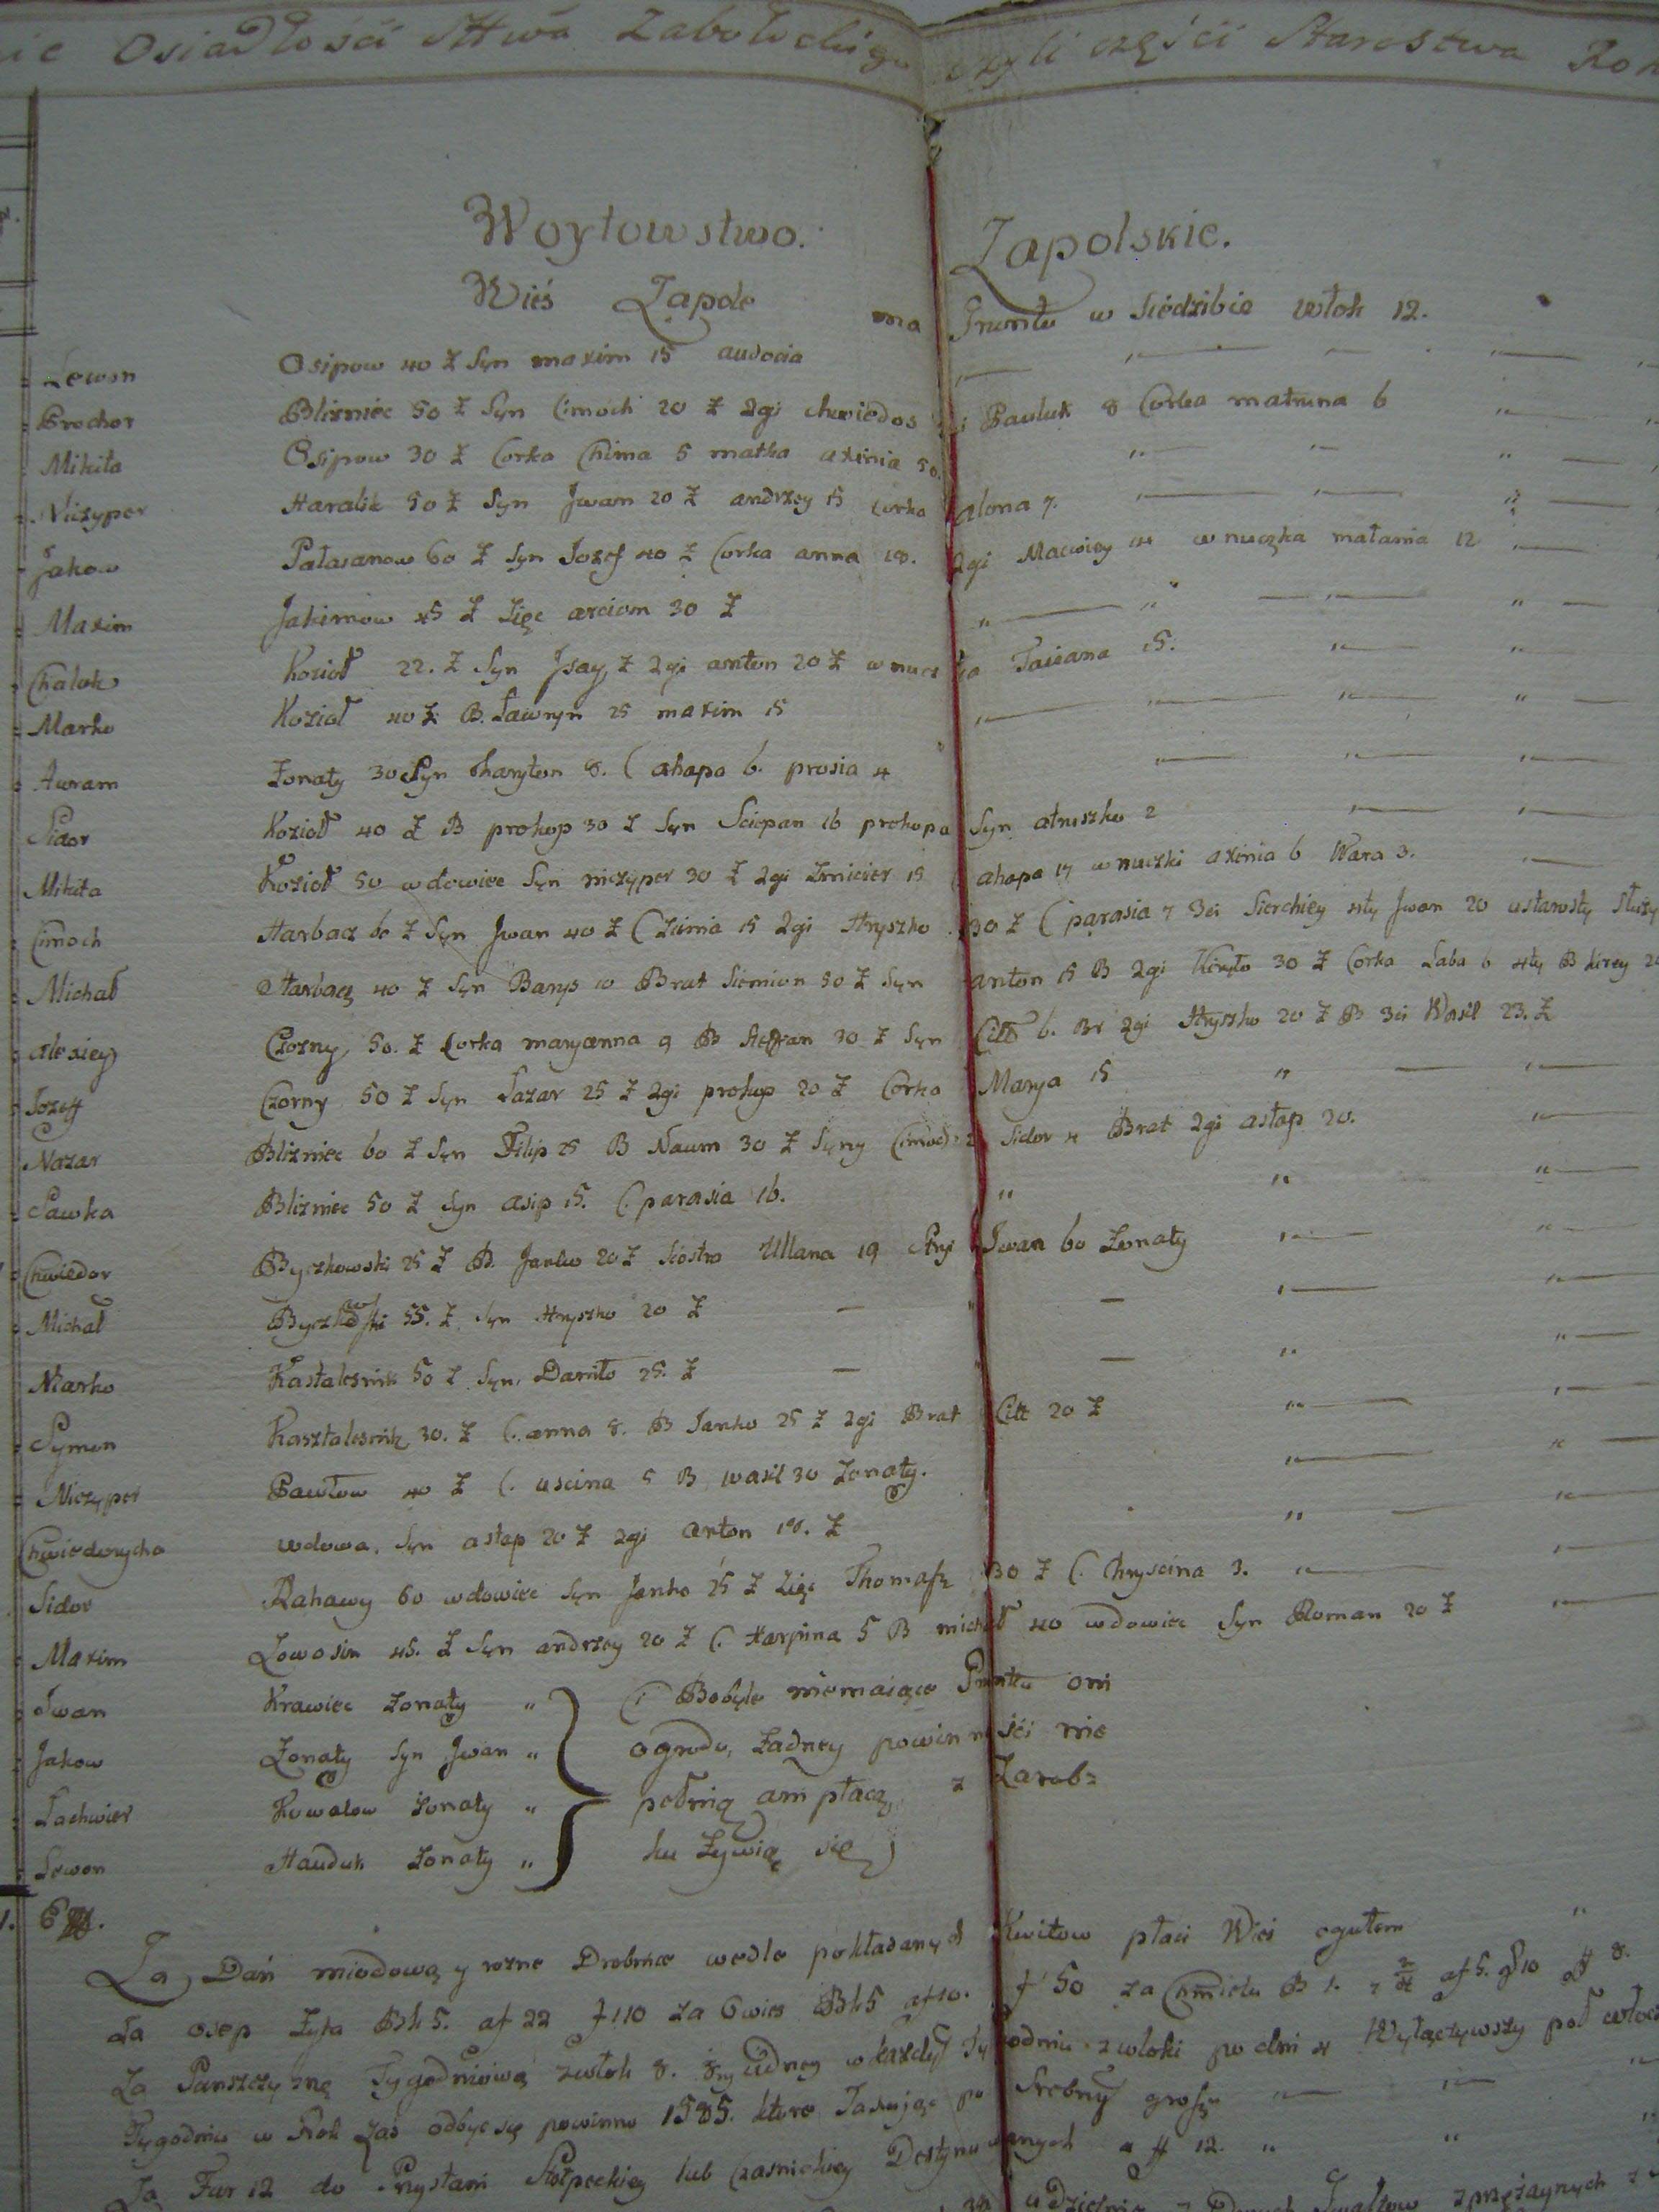 Osiadłości Sttwa Zabołockiego czyli części Starostwa
Woytowstwo. Zapolskie.
Wieś Zapole ma Gruntu w Siedzibie włok 12.
Lewon Osipow 40 Ż Syn maxim 15 audocia
Prochor Blizniec 50 Ż Syn Cimoch 20 Ż 2gi chwiedos Pauluk 8 Corka matruna 6
Mikita Osipow 30 Ż Corka Chima 5 matka axinia 50.
Niczyper Haralik 50 Ż Syn Jwan 20 Ż andrzey 15 corka alona 7.
Jakow Pałasanow 60 Ż Syn Jozef 40 Ż Corka anna 18. 2gi Maciey 14 wnuczka małania 12
Maxim Jakimow 45 Ż Zięc arciom 30 Ż
Chalok Kozioł 22. Ż Syn Jsay Ż 2gi anton 20 Ż wnuczka Taciana 15.
Marko Kozioł 40 Ż B. Ławryn 25 maxim 15
Awram Żonaty 30 Syn Charyton 8. C ahapa 6. prosia 4
Sidor Kozioł 40 Ż B prokop 30 Ż Syn Sciepan 16 prokopa Syn atruszko 2
Mikita Kozioł 50 wdowiec Syn niczyper 30 Ż 2gi Zmicier 15 C ahapa 17 wnuczki axinia 6 Wara 3.
Cimoch Harbacz 60 Ż Syn Jwan 40 Ż C Zinia 15 2gi Hryszko 30 Ż C parasia 7 3ci Sierchiey 4ty Jwan 20 ustarosty służy
Michał Harbacz 40 Ż Syn Barys 10 Brat Siemion 50 Ż Syn anton 15 B 2gi Kiryło 30 Ż Corka Laba 6 4ty B kirey
alexiey Czorny 50. Ż Corka maryanna 9 B Stepan 30 Ż Syn Citt 6. Br 2gi Hryszko 20 Ż B 3ci Wasil 23. Ż
Jozeff Czorny 50 Ż Syn Łazar 25 Ż 2gi prokop 20 Ż Corka Marya 15
Nazar Blizniec 60 Ż Syn Filip 25 B Naum 30 Ż Syny Cimoch Sidor 4 Brat 2gi astap 20.
Sawka Blizniec 50 Ż Syn asip 15. C. parasia 16.
Chwiedor Byczkowski 25 Ż B. Janko 20 Ż Siostra Ullana 19 Stryi Jwan 60 Żonaty
Michał Byczkowski 55. Ż Syn Hryszko 20 Ż
Marko Kastalesnik 50 Ż Syn Daniło 25. Ż
Symon Kasztalesnik 30. Ż C. anna 8. B Janko 25 Ż 2gi Brat Citt 20 Ż
Niczyper Pawłow 40 Ż C. uscina 5 B wasil 30 Żonaty.
Chwiedorycha wdowa, Syn astap 20 Ż 2gi anton 18. Ż
Sidor Rahawy 60 wdowiec Syn Janko 25 Ż Zięc Thomasz 30 Ż C. Chryscina 3.
Maxim Łowosin 45. Ż Syn andrzey 20 Ż C. Harpina 5 B michał 40 wdowiec Syn Roman 20 Ż
Jwan Krawiec Żonaty " Ci Bobyle niemaiące Gruntu oni
Jakow Żonaty Syn Jwan " ogrodu, Żadney powinności nie
Łachwier Kowalow Żonaty " pełnią ani płacą, z Zarob=
Lewon Hauduk Żonaty " ku Żywią się
Za Dań miodową y rozne Drobnice wedle pokładanych Kwitow płaci Wieś ogułem
Za osep Żyta Bk 5. af 22 f 110 za Owies Bk 5 af 10. f 50 za Chmielu B 1.
Za Panszczyznę Tygodniową zwłok 8. w każdy Tydodniu z włoki po dni 4 Wyłączywszy
Tygodniu w Rok zas odbyć się powinno 1585. ktore Taxując po Srebny groszy
Za Fur 12 do Prystani Stołpeckiey lub Czasnickiey Destynowanych a ff 12.